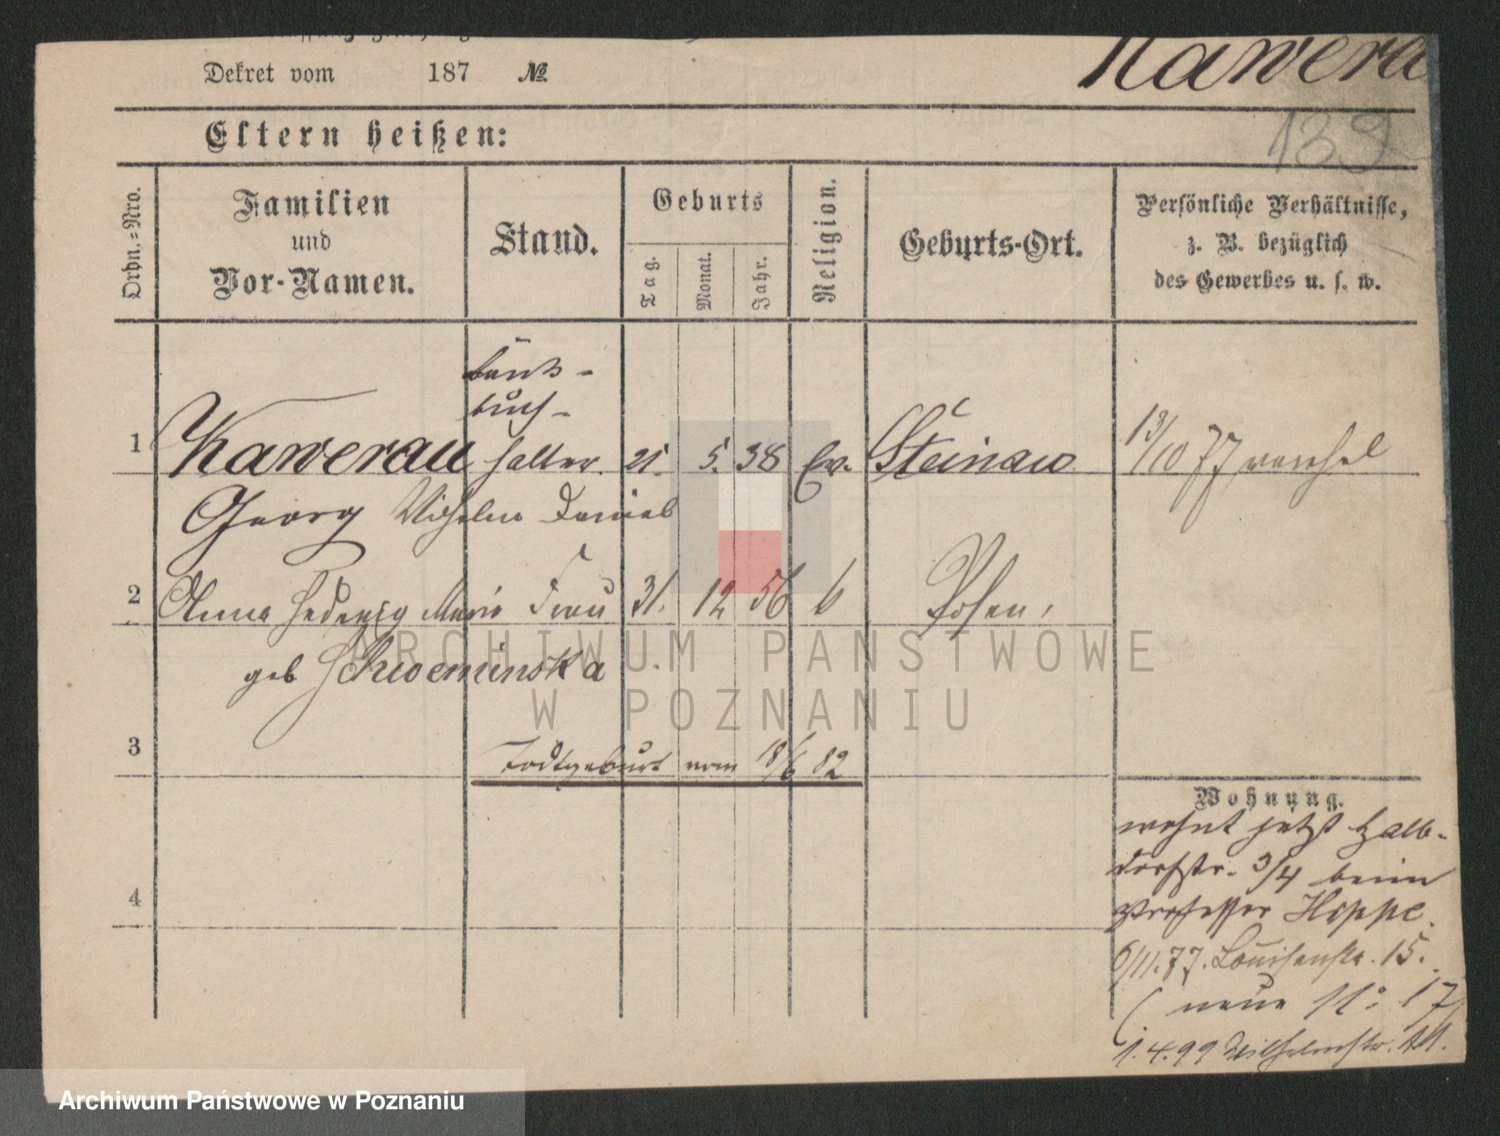 Dekret vom 187 №
Kawerau
139
Eltern heißen:
Ordn.-Nro.
Familien
und
Vor-Namen.
Stand.
Geburts
Tag.
Monat.
Jahr.
Religion.
Geburts-Ort.
Persönliche Verhältnisse,
z. B. bezüglich
des Gewerbes u. s. w.
Bank-
buch-
1 Kawerau halter. 21. 5. 38 Ev. Steinau 13/10 77
Georg Wilhelm Daniel
2 Anna Hedwig Marie Frau 31. 12 56 Posen,
geb
3 Todtgeburt vom 18/6 82
Wohnung.
wohnt jetzt Halb-
dorfstr. 3/4 beim
Professor Hoppe.
6/11.77. Louisenstr. 15.
( neue No 17
1.4.99 Wilhelmstr.
4
ARCHIWUM PAŃSTWOWE
W POZNANIU
Archiwum Państwowe w Poznaniu